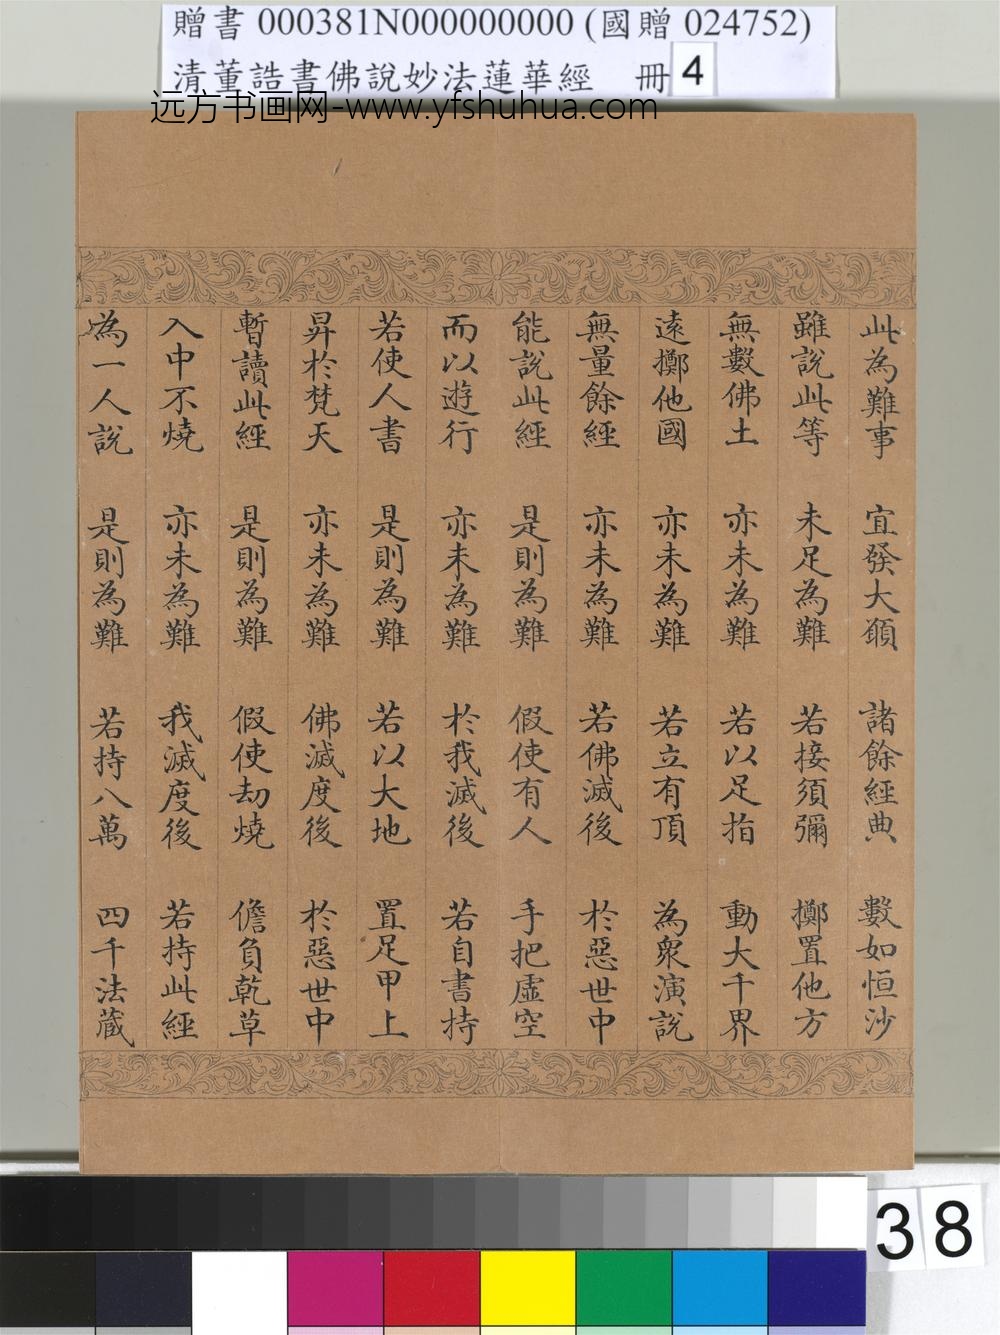 贈書 000381N000000000 (國贈 024752)
清董誥書佛說妙法蓮華經 冊 4
远方书画网-www.yfshuhua.com
此為難事 宜發大願 諸餘經典 數如恒沙
雖說此等 未足為難 若接須彌 擲置他方
無數佛土 亦未為難 若以足指 動大千界
遠擲他國 亦未為難 若立有頂 為眾演說
無量餘經 亦未為難 若佛滅後 於惡世中
能說此經 是則為難 假使有人 手把虛空
而以遊行 亦未為難 於我滅後 若自書持
若使人書 是則為難 若以大地 置足甲上
昇於梵天 亦未為難 佛滅度後 於惡世中
暫讀此經 是則為難 假使劫燒 擔負乾草
入中不燒 亦未為難 我滅度後 若持此經
為一人說 是則為難 若持八萬 四千法藏
38